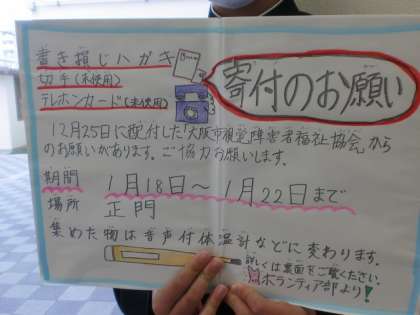 書き損じハガキ
切手(未使用)
テレホンカード(未使用)
寄付のお願い
12月25日に配付した「大阪市視覚障害者福祉協会」から
のお願いがあります。ご協力お願いします。
期間 1月18日～1月22日まで
場所 正門
集めた物は音声付体温計などに変わります。
詳しくは裏面をご覧ください。
ボランティア部より!